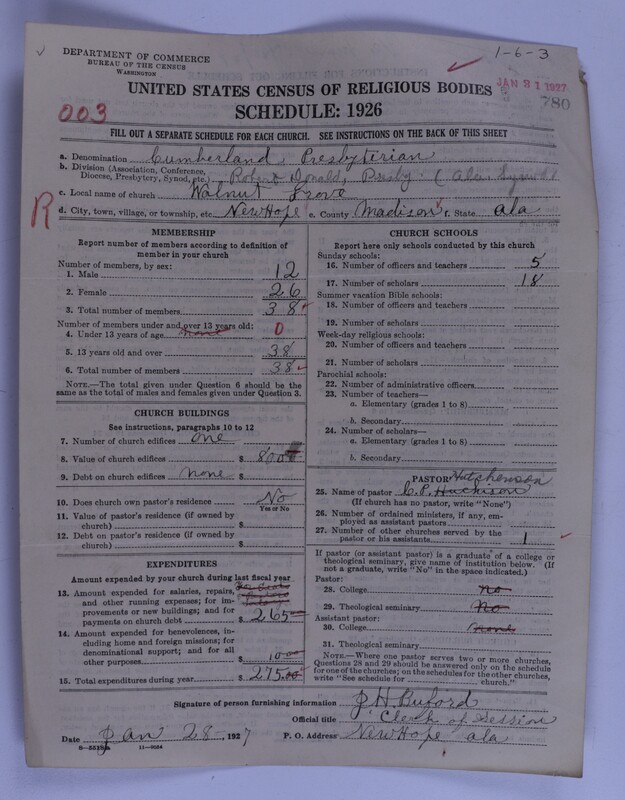 1-6-3
DEPARTMENT OF COMMERCE
BUREAU OF THE CENSUS
WASHINGTON
UNITED STATES CENSUS OF RELIGIOUS BODIES
JAN 31 1927
SCHEDULE: 1926
780
003
FILL OUT A SEPARATE SCHEDULE FOR EACH CHURCH. SEE INSTRUCTIONS ON THE BACK OF THIS SHEET
a. Denomination Cumberland Presbyterian
b. Division (Association, Conference, Diocese, Presbytery, Synod, etc.) Robert Donald, Presby (Ala. Synod)
c. Local name of church Walnut Grove
R
d. City, town, village, or township, etc. New Hope e. County Madison f. State Ala
MEMBERSHIP
Report number of members according to definition of
member in your church
Number of members, by sex:
1. Male 12
2. Female 26
3. Total number of members 38
Number of members under and over 13 years old:
4. Under 13 years of age none 0
5. 13 years old and over 38
6. Total number of members 38
NOTE.—The total given under Question 6 should be
same as the total of males and females given under Question 3.
CHURCH BUILDINGS
See instructions, paragraphs 10 to 12
7. Number of church edifices one
8. Value of church edifices $ 800
9. Debt on church edifices none $
10. Does church own pastor's residence No
Yes or No
11. Value of pastor's residence (if owned by
church) $
12. Debt on pastor's residence (if owned by
church) $
EXPENDITURES
Amount expended by your church during last fiscal year
13. Amount expended for salaries, repairs,
and other running expenses; for im-
provements or new buildings; and for
payments on church debt $ 265
14. Amount expended for benevolences, in-
cluding home and foreign missions; for
denominational support; and for all
other purposes $ 10.00
15. Total expenditures during year $ 275.00
CHURCH SCHOOLS
Report here only schools conducted by this church
Sunday schools:
16. Number of officers and teachers 5
17. Number of scholars 18
Summer vacation Bible schools:
18. Number of officers and teachers
19. Number of scholars
Week-day religious schools:
20. Number of officers and teachers
21. Number of scholars
Parochial schools:
22. Number of administrative officers
23. Number of teachers—
a. Elementary (grades 1 to 8)
b. Secondary
24. Number of scholars—
a. Elementary (grades 1 to 8)
b. Secondary
PASTOR Hutchenson
25. Name of pastor C. P. Huchison
(If church has no pastor, write "None")
26. Number of ordained ministers, if any, em-
ployed as assistant pastors
27. Number of other churches served by the
pastor or his assistants 1
If pastor (or assistant pastor) is a graduate of a college or
theological seminary, give name of institution below. (If
not a graduate, write "No" in the space indicated.)
Pastor:
28. College no
29. Theological seminary No
Assistant pastor:
30. College none
31. Theological seminary
NOTE.—Where one pastor serves two or more churches,
Questions 28 and 29 should be answered only on the schedule
for one of the churches; on the schedules for the other churches,
write "See schedule for church."
Signature of person furnishing information J. H. Buford
Official title Clerk of Session
Date Jan 28, 1927 P. O. Address New Hope ala
11—9084